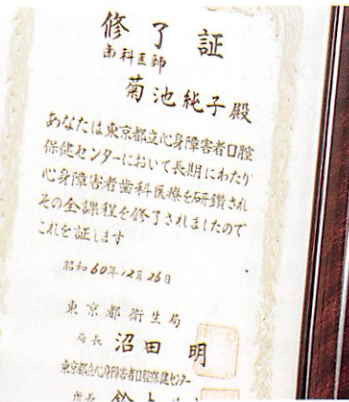 修了証
歯科医師
菊池純子殿
あなたは東京都立心身障害者口腔
保健センターにおいて長期にわたり
心身障害者歯科医療を研鑽され
その全課程を修了されましたので
これを証します
昭和60年12月26日
東京都衛生局
局長 沼田 明
東京都立心身障害者口腔保健センター